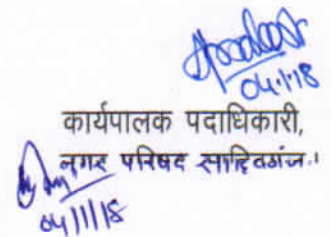 04.1.18
कार्यपालक पदाधिकारी,
नगर परिषद साहिबगंज।
04/1/18